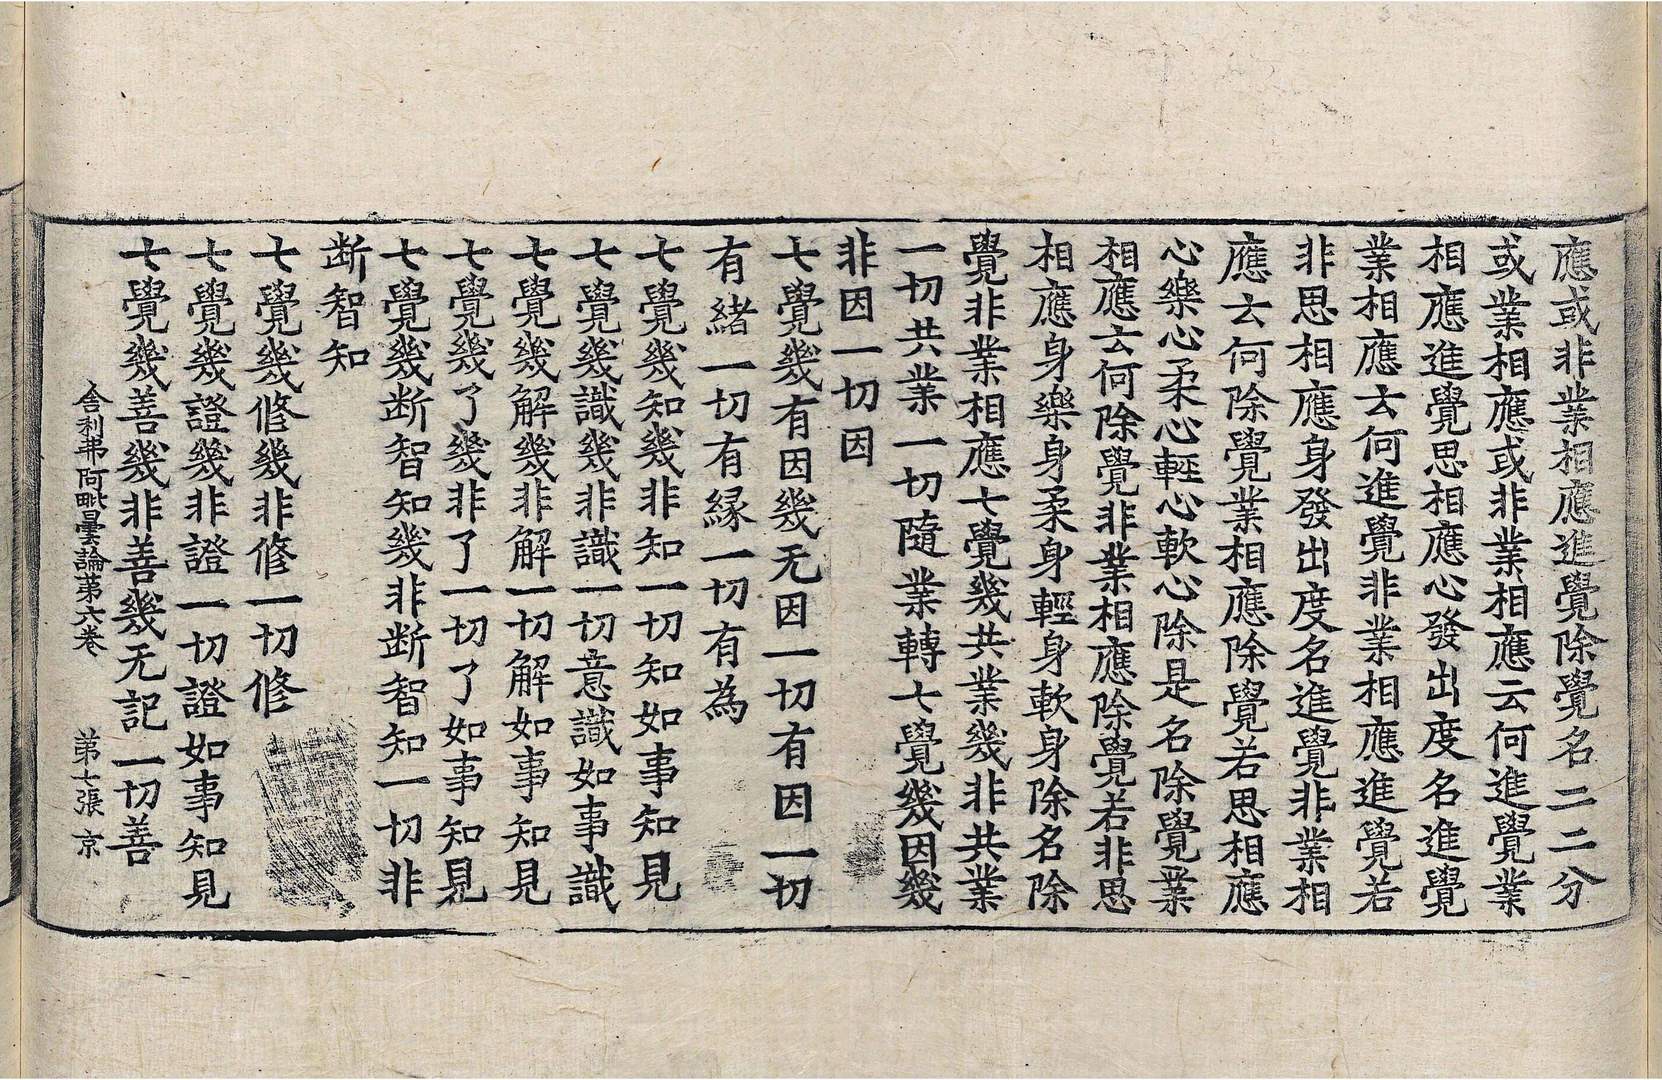 應或非業相應進覺除覺名二二分
或業相應或非業相應云何進覺業
相應進覺思相應心發出度名進覺
業相應云何進覺非業相應進覺若
非思相應身發出度名進覺非業相
應云何除覺業相應除覺若思相應
心樂心柔心輕心軟心除是名除覺業
相應云何除覺非業相應除覺若非思
相應身樂身柔身輕身軟身除名除
覺非業相應七覺幾共業幾非共業
一切共業一切隨業轉七覺幾因幾
非因一切因
七覺幾有因幾无因一切有因一切
有緒一切有緣一切有為
七覺幾知幾非知一切知如事知見
七覺幾識幾非識一切意識如事識
七覺幾解幾非解一切解如事知見
七覺幾了幾非了一切了如事知見
七覺幾断智知幾非断智知一切非
断智知
七覺幾修幾非修一切修
七覺幾證幾非證一切證如事知見
七覺幾善幾非善幾无記一切善
舍利弗阿毗曇論第六卷 第七張 京